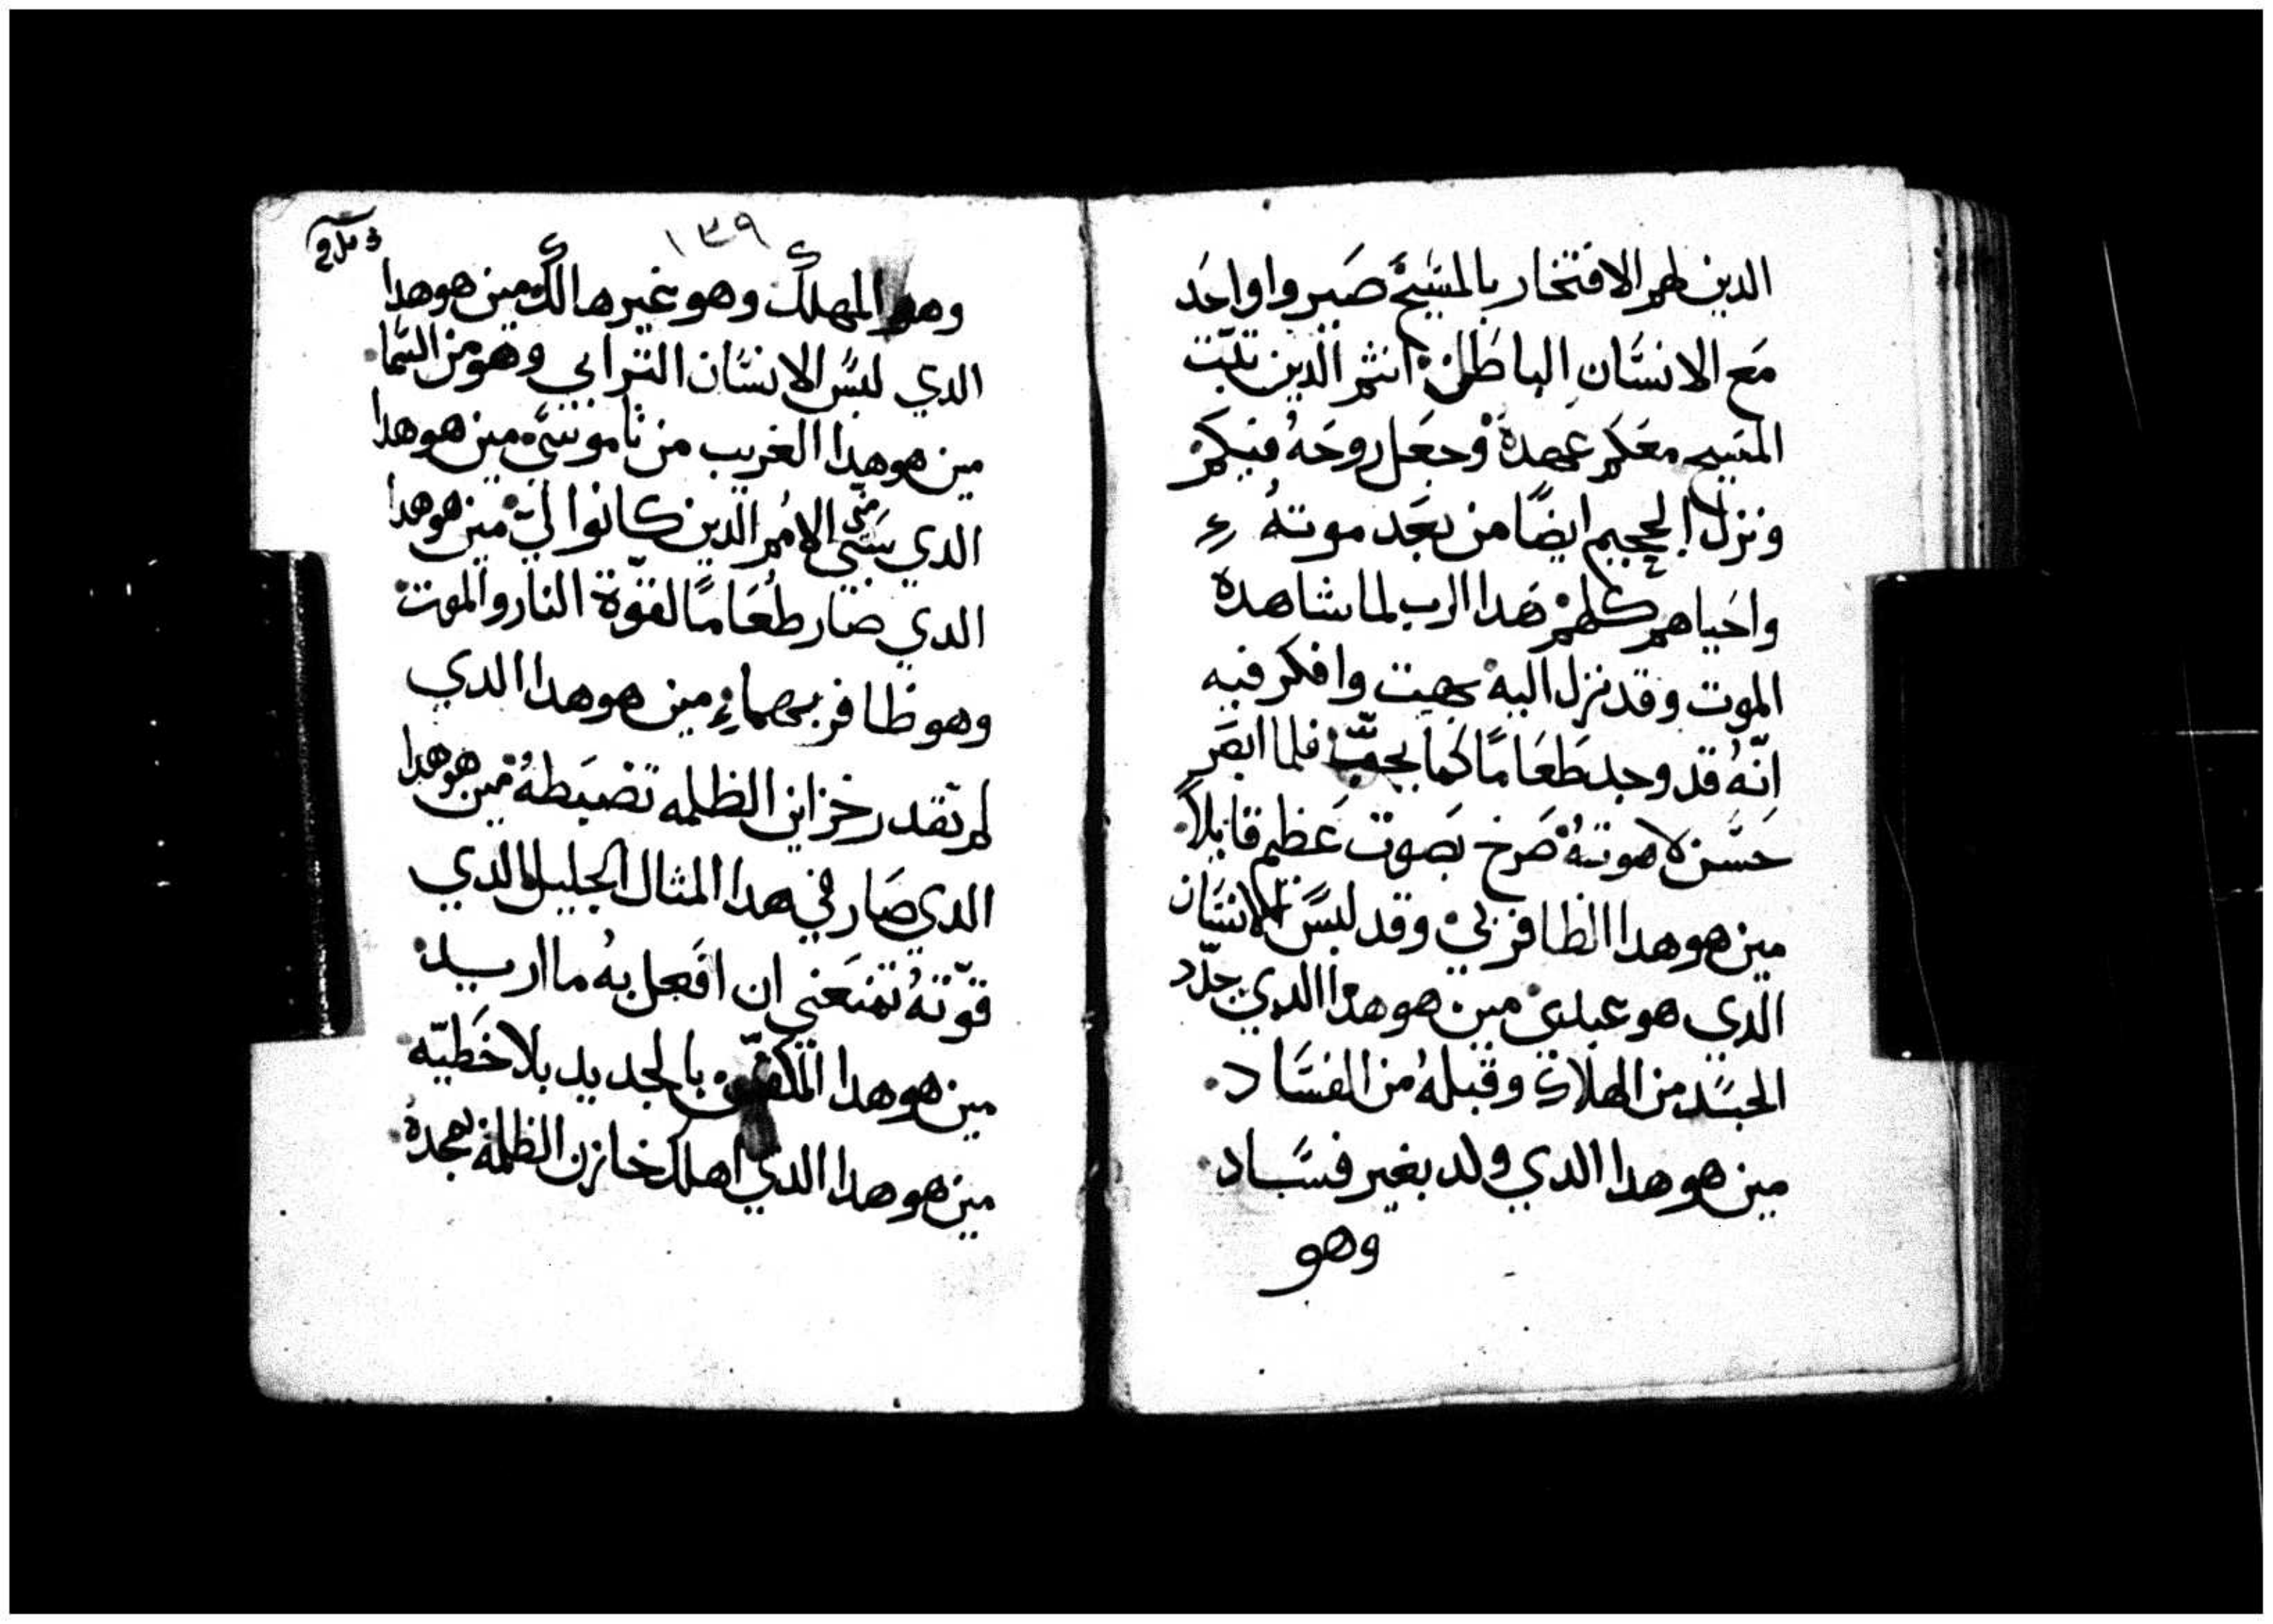 الدين لهم الافتخار بالمسَيحَ صَيروا واحَد
مَع الانسَان الباطَل انتم الدين تبّت
المسَيح معَكم عَهدهُ وجعَل روحَهُ فيكم
ونزل الجحيم ايضًا من بعَد موتهُ
واحَياهم كلهم هَدا الرب لما شاهده
الموت وقد نزل اليه بهت وافكر فيه
انّهُ قد وجد طَعَامًا كما يحبّ فلما ابصَر
حَسَن لاهوتهُ صَرخ بصَوت عَظيم قايلاً
مين هو هدا الظافر بي وقد لبسَ الانسَان
الدي هو عبدي مين هو هدا الدي جدّد
الجسَد من الهلاك وقبلهُ من الفسَاد
مين هو هدا الدي ولد بغير فسَاد
وهو
١٣٩
وهو المهلك وهو غير هالك مين هو هدا
الدي لبسَ الانسَان الترابي وهو من السَما
مين هو هدا الغريب من ناموسَي مين هو هدا
الدي سَبَي مني الامُم الدين كانوا لي مين هو هدا
الدي صَار طعَامًا لقوّة النار والموت
وهو ظافر بهما مين هو هدا الدي
لم تقدر خزاين الظلمه تضبَطهُ مين هو هدا
الدي صَار في هدا المثال الجليل الدي
قوّتهُ تمنعَني ان افعَل بهُ ما اريد
مين هو هدا المكفن بالجديد بلا خَطيّه
مين هو هدا الدي اهلك خازن الظلمة بمجدهُ